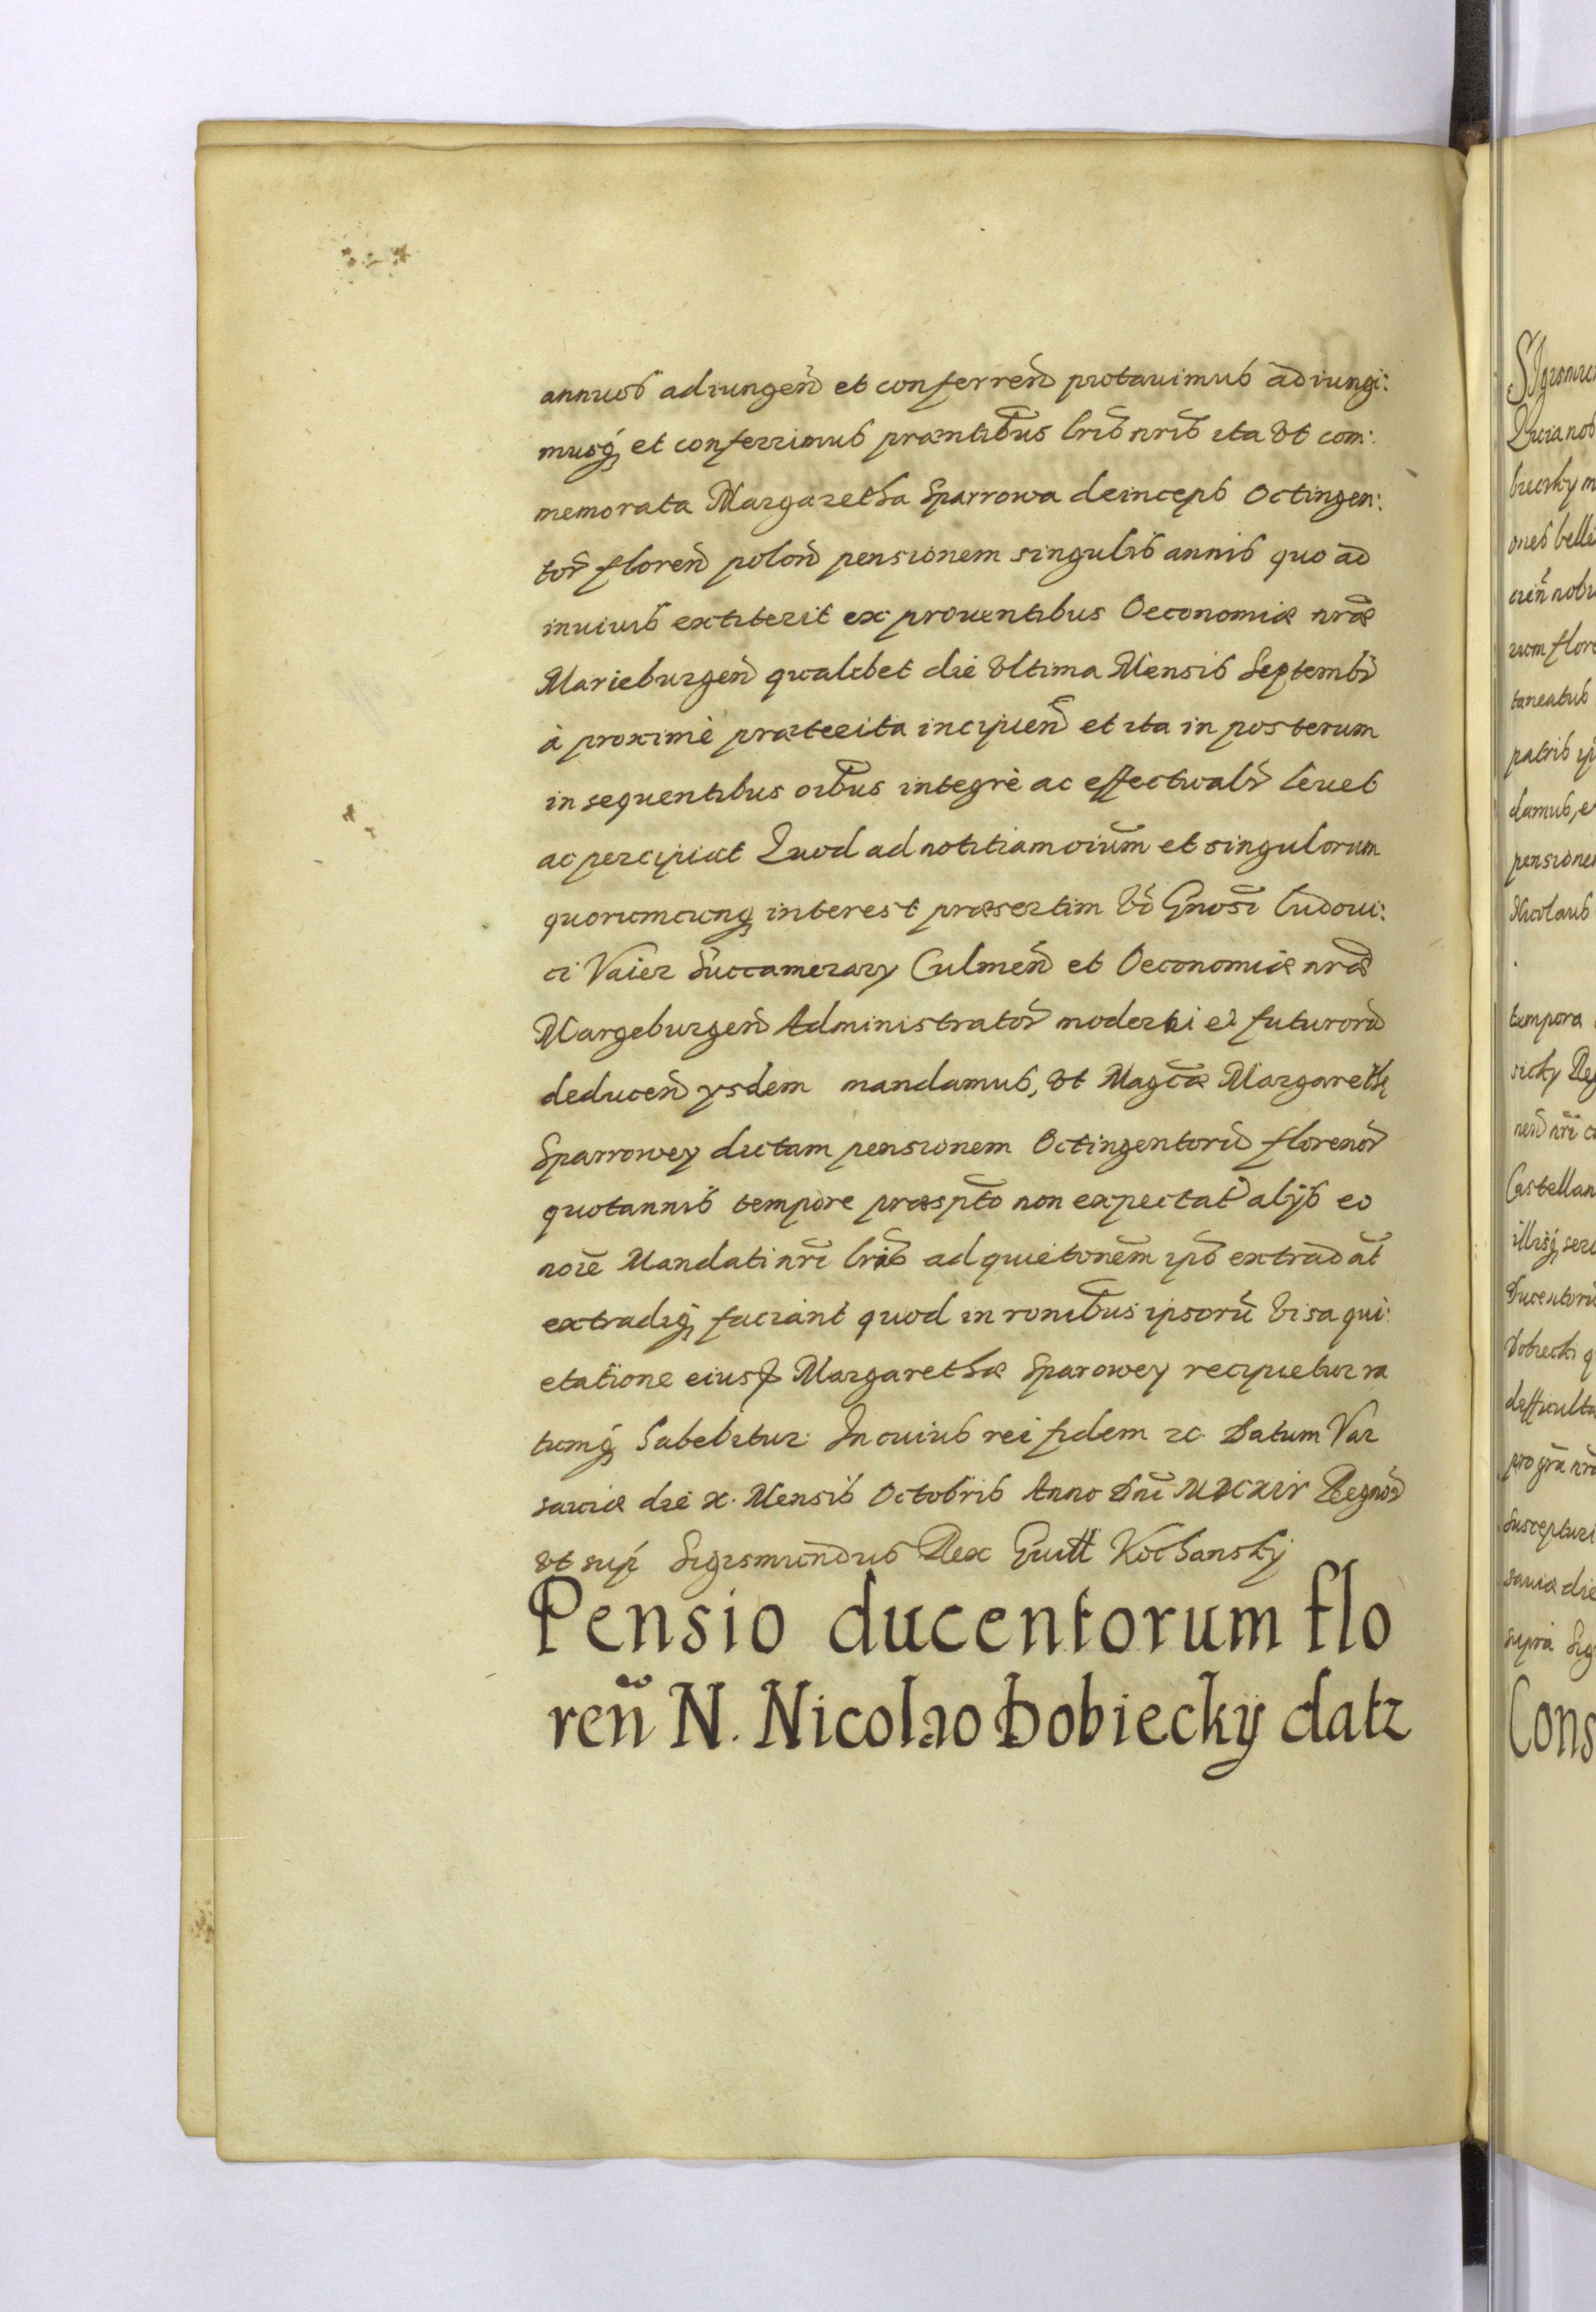 annuos adiungen̄ et conferren̄ putauimus adiungi:
musq₃ et conferrimus præntibus lrīs nrīs ita vt com:
memorata Margaretha Sparrowa deinceps Octingen:
tor̄ floren̄ polon̄ pensionem singulis annis quo ad
inuiuis extiterit ex prouentibus Oeconomiæ nræ
Marieburgen̄ qualibet die vltima Mensis Septembr̄
à proximè præterita incipien̄ et ita in posterum
in sequentibus oībus integrè ac effectualr̄ leuet
ac percipiat Quod ad notitiam oiūm et singulorum
quorumcunq₃ interest præsertim vō Gnosi Ludoui:
ci Vaier Succamerary Culmen̄ et Oeconomiæ nræ
Margeburgen̄ Administrator̄ moderni et futurorū
deducen̄ ysdem mandamus, vt Magcæ Margarethę
Sparrowey dictam pensionem Octingentorū florenor̄
quotannis tempore præspto non expectat̄ alijs eo
noīe Mandati nrī lrīs ad quietōnem ipīs extradāt
extradiq₃ faciant quod in ronībus ipsorū visa qui:
etatione eiusd Margarethæ Sparowey recipietur ra
tumq₃ habebitur. In cuius rei fidem zc. Datum Var
sauiæ die x. Mensis Octobris Anno Dnī MDCXIV Regnor̄
vt sup̄ Sigismundus Rex Guill Kochansky
Pensio ducentorum flo
ren̄ N. Nicolao Dobiecky datr
Sigismun
biecky m
ones belli
cien̄ nobi
rum flore
taneatus
patris ip
damus, e
pensione
Nicolaus
tempora
sicky Reg
nen̄ nrī c
Castellan
illisq₃ ser
Ducentoru
Dobiecki q
difficulta
pro gra nrā
suscepturi
sauiæ die
supra Sig
Cons